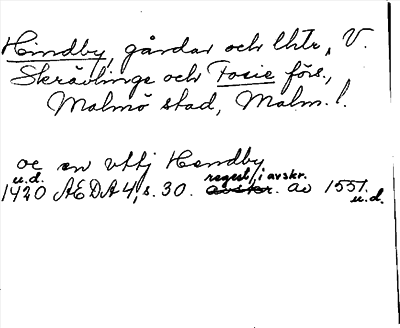 Hindby, gårdar och lhtr, V.
Skrävlinge och Fosie förs.,
Malmö stad, Malm. l.
oc en vttj Hendby
u.d.
regest, i avskr.
1420 AEDA 4, s. 30. avskr. av 1551.
u.d.